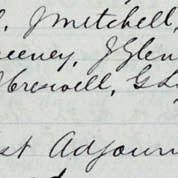 J Mitchell,
eeney, J Glen
Creswell, G L
st Adjourn